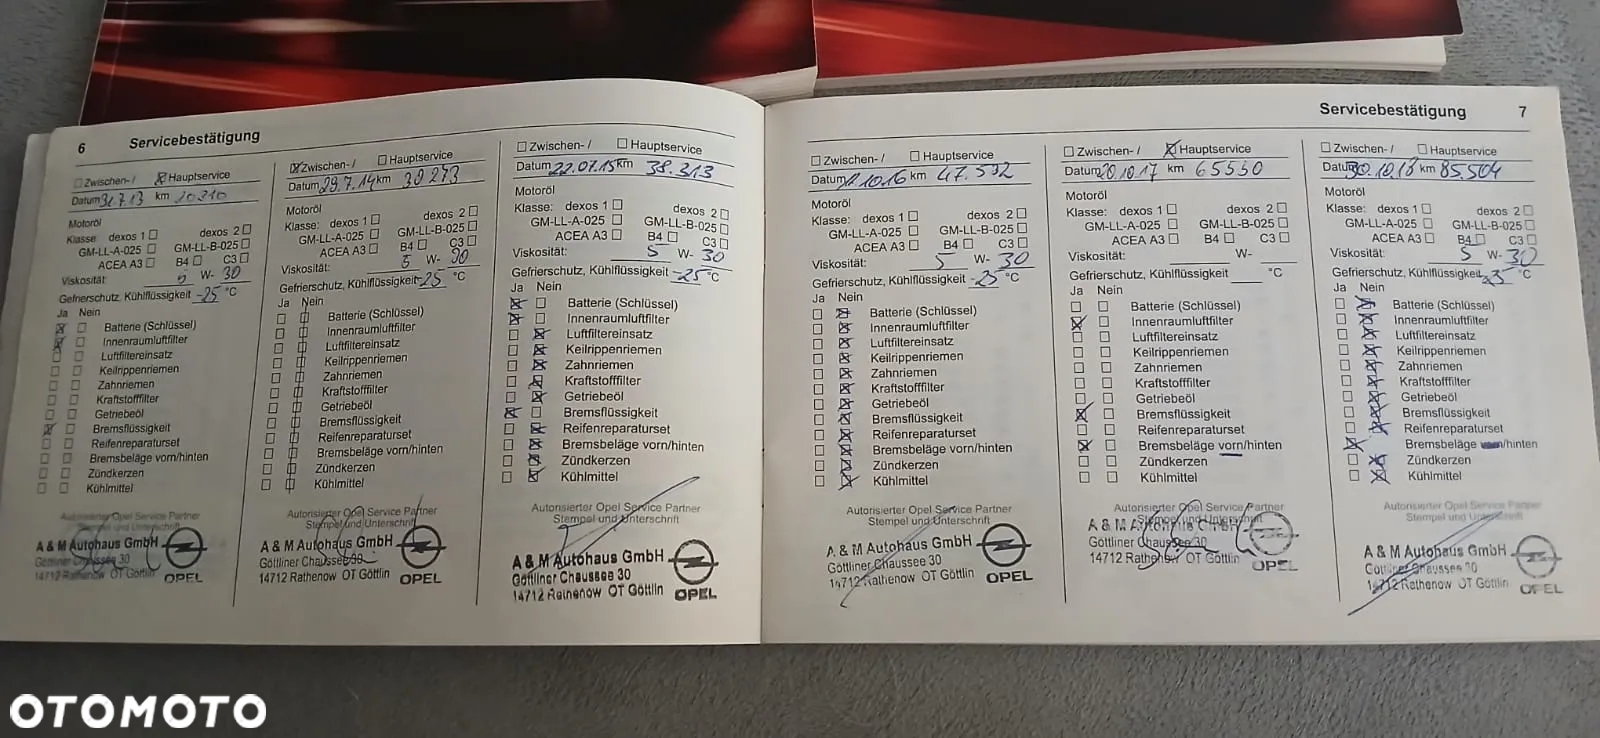 6 Servicebestätigung
Zwischen-/ Hauptservice
Datum 31.7.13 km 20310
Motoröl
Klasse: dexos 1 dexos 2
GM-LL-A-025 GM-LL-B-025
ACEA A3 B4 C3
Viskosität: 5 W- 30
Gefrierschutz, Kühlflüssigkeit -25 °C
Ja Nein
Batterie (Schlüssel)
Innenraumluftfilter
Luftfiltereinsatz
Keilrippenriemen
Zahnriemen
Kraftstofffilter
Getriebeöl
Bremsflüssigkeit
Reifenreparaturset
Bremsbeläge vorn/hinten
Zündkerzen
Kühlmittel
Autorisierter Opel Service Partner
Stempel und Unterschrift
A & M Autohaus GmbH
Göttliner Chaussee 30
14712 Rathenow OT Göttlin
OPEL
Zwischen-/ Hauptservice
Datum 29.7.14 km 30273
Motoröl
Klasse: dexos 1 dexos 2
GM-LL-A-025 GM-LL-B-025
ACEA A3 B4 C3
Viskosität: 5 W- 30
Gefrierschutz, Kühlflüssigkeit -25 °C
Ja Nein
Batterie (Schlüssel)
Innenraumluftfilter
Luftfiltereinsatz
Keilrippenriemen
Zahnriemen
Kraftstofffilter
Getriebeöl
Bremsflüssigkeit
Reifenreparaturset
Bremsbeläge vorn/hinten
Zündkerzen
Kühlmittel
Autorisierter Opel Service Partner
Stempel und Unterschrift
A & M Autohaus GmbH
Göttliner Chaussee 30
14712 Rathenow OT Göttlin
OPEL
Zwischen-/ Hauptservice
Datum 22.07.15 km 38.313
Motoröl
Klasse: dexos 1 dexos 2
GM-LL-A-025 GM-LL-B-025
ACEA A3 B4 C3
Viskosität: 5 W- 30
Gefrierschutz, Kühlflüssigkeit -25 °C
Ja Nein
Batterie (Schlüssel)
Innenraumluftfilter
Luftfiltereinsatz
Keilrippenriemen
Zahnriemen
Kraftstofffilter
Getriebeöl
Bremsflüssigkeit
Reifenreparaturset
Bremsbeläge vorn/hinten
Zündkerzen
Kühlmittel
Autorisierter Opel Service Partner
Stempel und Unterschrift
A & M Autohaus GmbH
Göttliner Chaussee 30
14712 Rathenow OT Göttlin
OPEL
Servicebestätigung 7
Zwischen-/ Hauptservice
Datum 10.16 km 47.592
Motoröl
Klasse: dexos 1 dexos 2
GM-LL-A-025 GM-LL-B-025
ACEA A3 B4 C3
Viskosität: 5 W- 30
Gefrierschutz, Kühlflüssigkeit -25 °C
Ja Nein
Batterie (Schlüssel)
Innenraumluftfilter
Luftfiltereinsatz
Keilrippenriemen
Zahnriemen
Kraftstofffilter
Getriebeöl
Bremsflüssigkeit
Reifenreparaturset
Bremsbeläge vorn/hinten
Zündkerzen
Kühlmittel
Autorisierter Opel Service Partner
Stempel und Unterschrift
A & M Autohaus GmbH
Göttliner Chaussee 30
14712 Rathenow OT Göttlin
OPEL
Zwischen-/ Hauptservice
Datum 20.10.17 km 65550
Motoröl
Klasse: dexos 1 dexos 2
GM-LL-A-025 GM-LL-B-025
ACEA A3 B4 C3
Viskosität: W-
Gefrierschutz, Kühlflüssigkeit °C
Ja Nein
Batterie (Schlüssel)
Innenraumluftfilter
Luftfiltereinsatz
Keilrippenriemen
Zahnriemen
Kraftstofffilter
Getriebeöl
Bremsflüssigkeit
Reifenreparaturset
Bremsbeläge vorn/hinten
Zündkerzen
Kühlmittel
Autorisierter Opel Service Partner
Stempel und Unterschrift
A & M Autohaus GmbH
Göttliner Chaussee 30
14712 Rathenow OT Göttlin
OPEL
Zwischen-/ Hauptservice
Datum 30.10.18 km 85.504
Motoröl
Klasse: dexos 1 dexos 2
GM-LL-A-025 GM-LL-B-025
ACEA A3 B4 C3
Viskosität: 5 W- 30
Gefrierschutz, Kühlflüssigkeit °C
Ja Nein
Batterie (Schlüssel)
Innenraumluftfilter
Luftfiltereinsatz
Keilrippenriemen
Zahnriemen
Kraftstofffilter
Getriebeöl
Bremsflüssigkeit
Reifenreparaturset
Bremsbeläge vorn/hinten
Zündkerzen
Kühlmittel
Autorisierter Opel Service Partner
Stempel und Unterschrift
A & M Autohaus GmbH
Göttliner Chaussee 30
14712 Rathenow OT Göttlin
OPEL
OTOMOTO